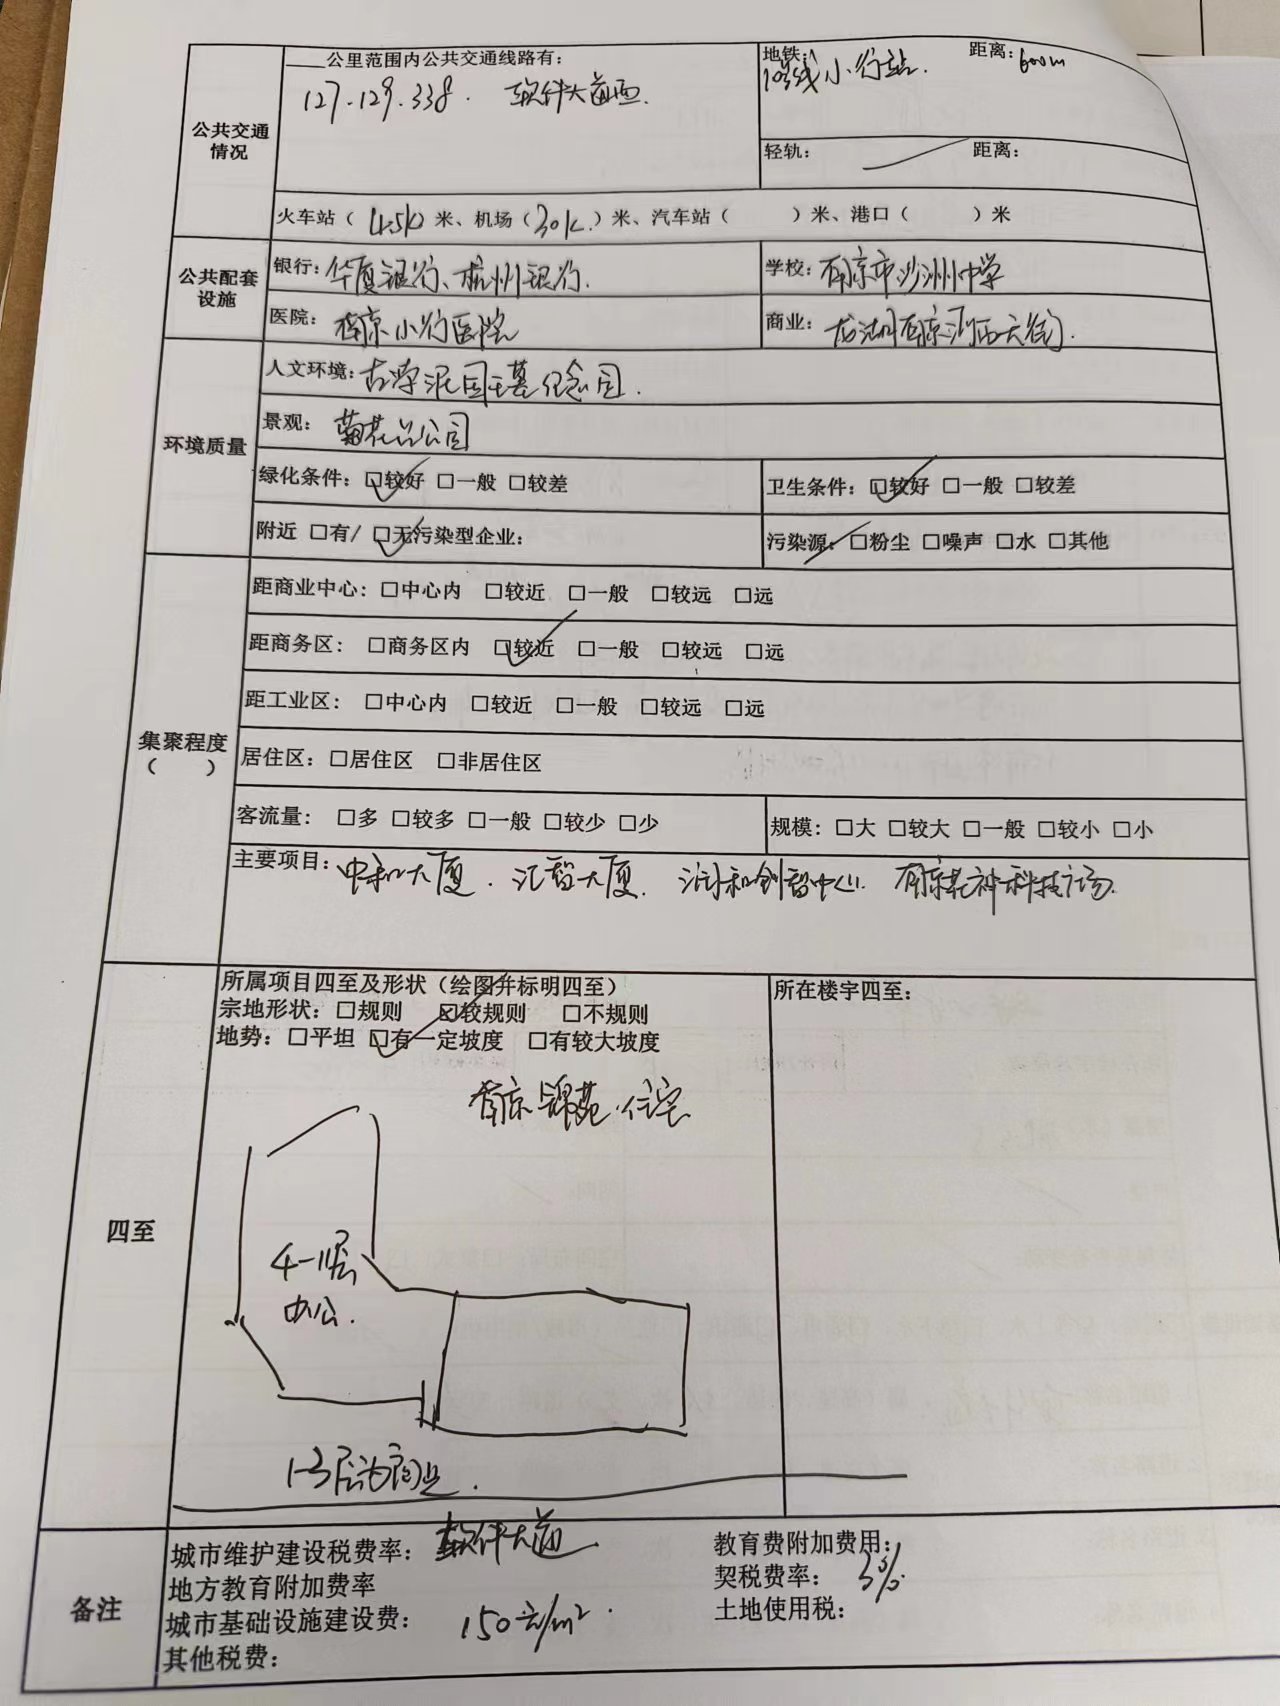 公共交通情况
____公里范围内公共交通线路有：
127.129.338. 软件大道西.
地铁： 距离：600m
10号线小行站.
轻轨： 距离：
火车站（4.5k）米、机场（30k.）米、汽车站（ ）米、港口（ ）米
公共配套设施
银行：华夏银行、杭州银行.
学校：南京市沙洲中学
医院：南京小行医院
商业：龙湖南京河西天街.
环境质量
人文环境：古浡泥国王墓纪念园.
景观：菊花台公园
绿化条件：☑较好 □一般 □较差
卫生条件：☑较好 □一般 □较差
附近 □有/ ☑无污染型企业：
污染源：□粉尘 □噪声 □水 □其他
集聚程度
（ ）
距商业中心：□中心内 □较近 □一般 □较远 □远
距商务区：□商务区内 ☑较近 □一般 □较远 □远
距工业区：□中心内 □较近 □一般 □较远 □远
居住区：□居住区 □非居住区
客流量：□多 □较多 □一般 □较少 □少
规模：□大 □较大 □一般 □较小 □小
主要项目：中和大厦. 汇智大厦. 润和创智中心. 南京花神科技广场.
四至
所属项目四至及形状（绘图并标明四至）
宗地形状：□规则 ☑较规则 □不规则
地势：□平坦 ☑有一定坡度 □有较大坡度
所在楼宇四至：
南京锦苑.住宅
4-11层
办公.
1-3层为商业.
软件大道
备注
城市维护建设税费率：
教育费附加费用：
地方教育附加费率
契税费率：3%.
城市基础设施建设费：150元/m².
土地使用税：
其他税费：